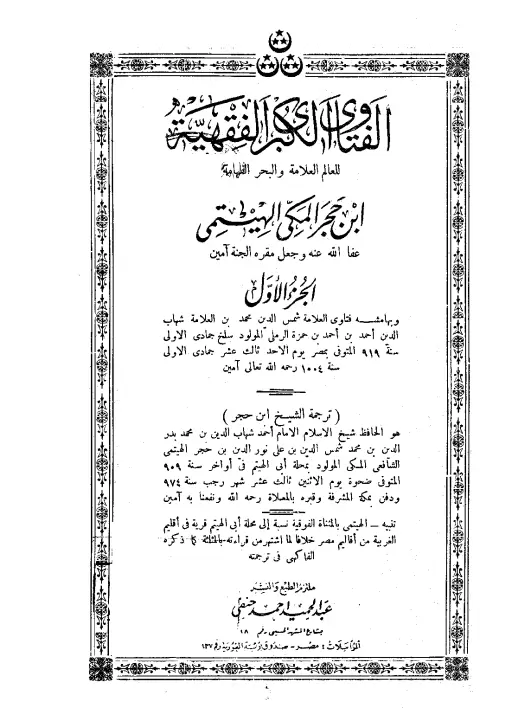 الفتاوى الكبرى الفقهية
للعالم العلامة والبحر الفهامة
ابن حجر المكي الهيتمي
عفا الله عنه وجعل مقره الجنة آمين
الجزء الأول
وبهامشه فتاوى العلامة شمس الدين محمد بن العلامة شهاب
الدين أحمد بن أحمد بن حمزة الرملي المولود سلخ جمادى الاولى
سنة ٩١٩ المتوفى بمصر يوم الاحد ثالث عشر جمادى الاولى
سنة ١٠٠٤ رحمه الله تعالى آمين
( ترجمة الشيخ ابن حجر )
هو الحافظ شيخ الاسلام الامام أحمد شهاب الدين بن محمد بدر
الدين بن محمد شمس الدين بن على نور الدين بن حجر الهيتمى
الشافعى المكى المولود بمحلة أبى الهيتم فى أواخر سنة ٩٠٩
المتوفى ضحوة يوم الاثنين ثالث عشر شهر رجب سنة ٩٧٤
ودفن بمكة المشرفة وقبره بالمعلاة رحمه الله ونفعنا به آمين
تنبيه – الهيتمى بالمثناة الفوقية نسبة إلى محلة أبى الهيتم قرية فى أقاليم
الغربية من أقاليم مصر خلافا لما اشتهر من قراءته بالمثلثة كما ذكره
الفاكهى فى ترجمته
ملتزم الطبع والنشر
عبد الحميد أحمد حنفى
بشارع المشهد الحسينى رقم ١٨
المراسلات : مصر – صندوق بوستة الغورية رقم ١٣٧